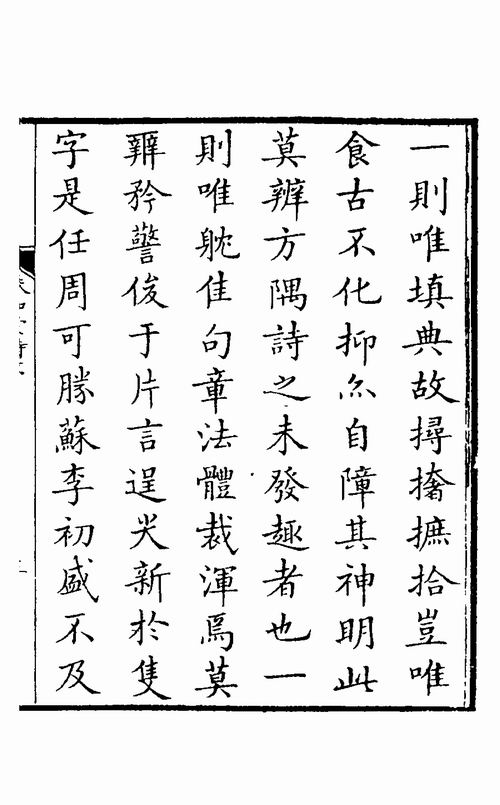 一則唯填典故撏撦摭拾豈唯
食古不化抑亦自障其神明此
莫辨方隅詩之未發趣者也一
則唯躭佳句章法體裁渾焉莫
辨矜警俊于片言逞尖新於隻
字是任周可勝蘇李初盛不及